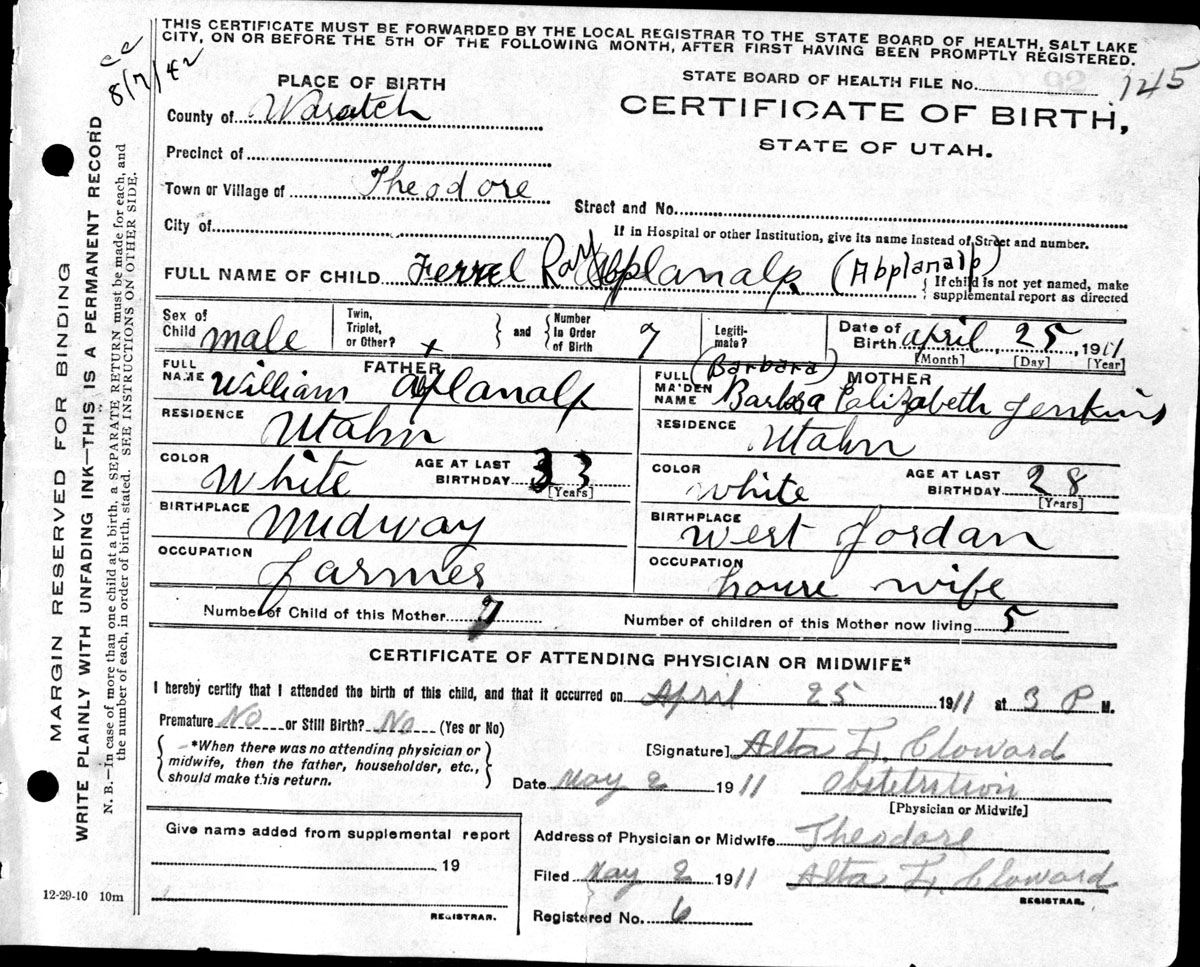 THIS CERTIFICATE MUST BE FORWARDED BY THE LOCAL REGISTRAR TO THE STATE BOARD OF HEALTH, SALT LAKE
CITY, ON OR BEFORE THE 5TH OF THE FOLLOWING MONTH, AFTER FIRST HAVING BEEN PROMPTLY REGISTERED.
8/7/42
MARGIN RESERVED FOR BINDING
WRITE PLAINLY WITH UNFADING INK—THIS IS A PERMANENT RECORD
N. B.—In case of more than one child at a birth, a SEPARATE RETURN must be made for each, and
the number of each, in order of birth, stated. SEE INSTRUCTIONS ON OTHER SIDE.
PLACE OF BIRTH
STATE BOARD OF HEALTH FILE No. 145
County of Wasatch
CERTIFICATE OF BIRTH,
STATE OF UTAH.
Precinct of
Town or Village of Theodore
Street and No.
City of
If in Hospital or other Institution, give its name instead of Street and number.
FULL NAME OF CHILD Ferrel Ray Abplanalp (Abplanalp)
{ If child is not yet named, make
supplemental report as directed
Sex of Child male
Twin, Triplet, or Other?
} and { Number In Order of Birth 7
Legiti-mate?
Date of Birth April 25, 1911
[Month] [Day] [Year]
FATHER
FULL NAME William Aplanalp
RESIDENCE Utahn
COLOR White
AGE AT LAST BIRTHDAY 33 [Years]
BIRTHPLACE Midway
OCCUPATION farmer
(Barbara) MOTHER
FULL MAIDEN NAME Barbra Elizabeth Jenkins
RESIDENCE Utahn
COLOR White
AGE AT LAST BIRTHDAY 28 [Years]
BIRTHPLACE West Jordan
OCCUPATION house wife
Number of Child of this Mother 7
Number of children of this Mother now living 5
CERTIFICATE OF ATTENDING PHYSICIAN OR MIDWIFE*
I hereby certify that I attended the birth of this child, and that it occurred on April 25 1911 at 3 P M.
Premature No or Still Birth? No (Yes or No)
{ *When there was no attending physician or
midwife, then the father, householder, etc.,
should make this return. }
[Signature] Alta L. Cloward
Date May 2 1911 Obstetrition
[Physician or Midwife]
Give name added from supplemental report
19
REGISTRAR.
12-29-10 10m
Address of Physician or Midwife Theodore
Filed May 2 1911 Alta L. Cloward
REGISTRAR.
Registered No. 6